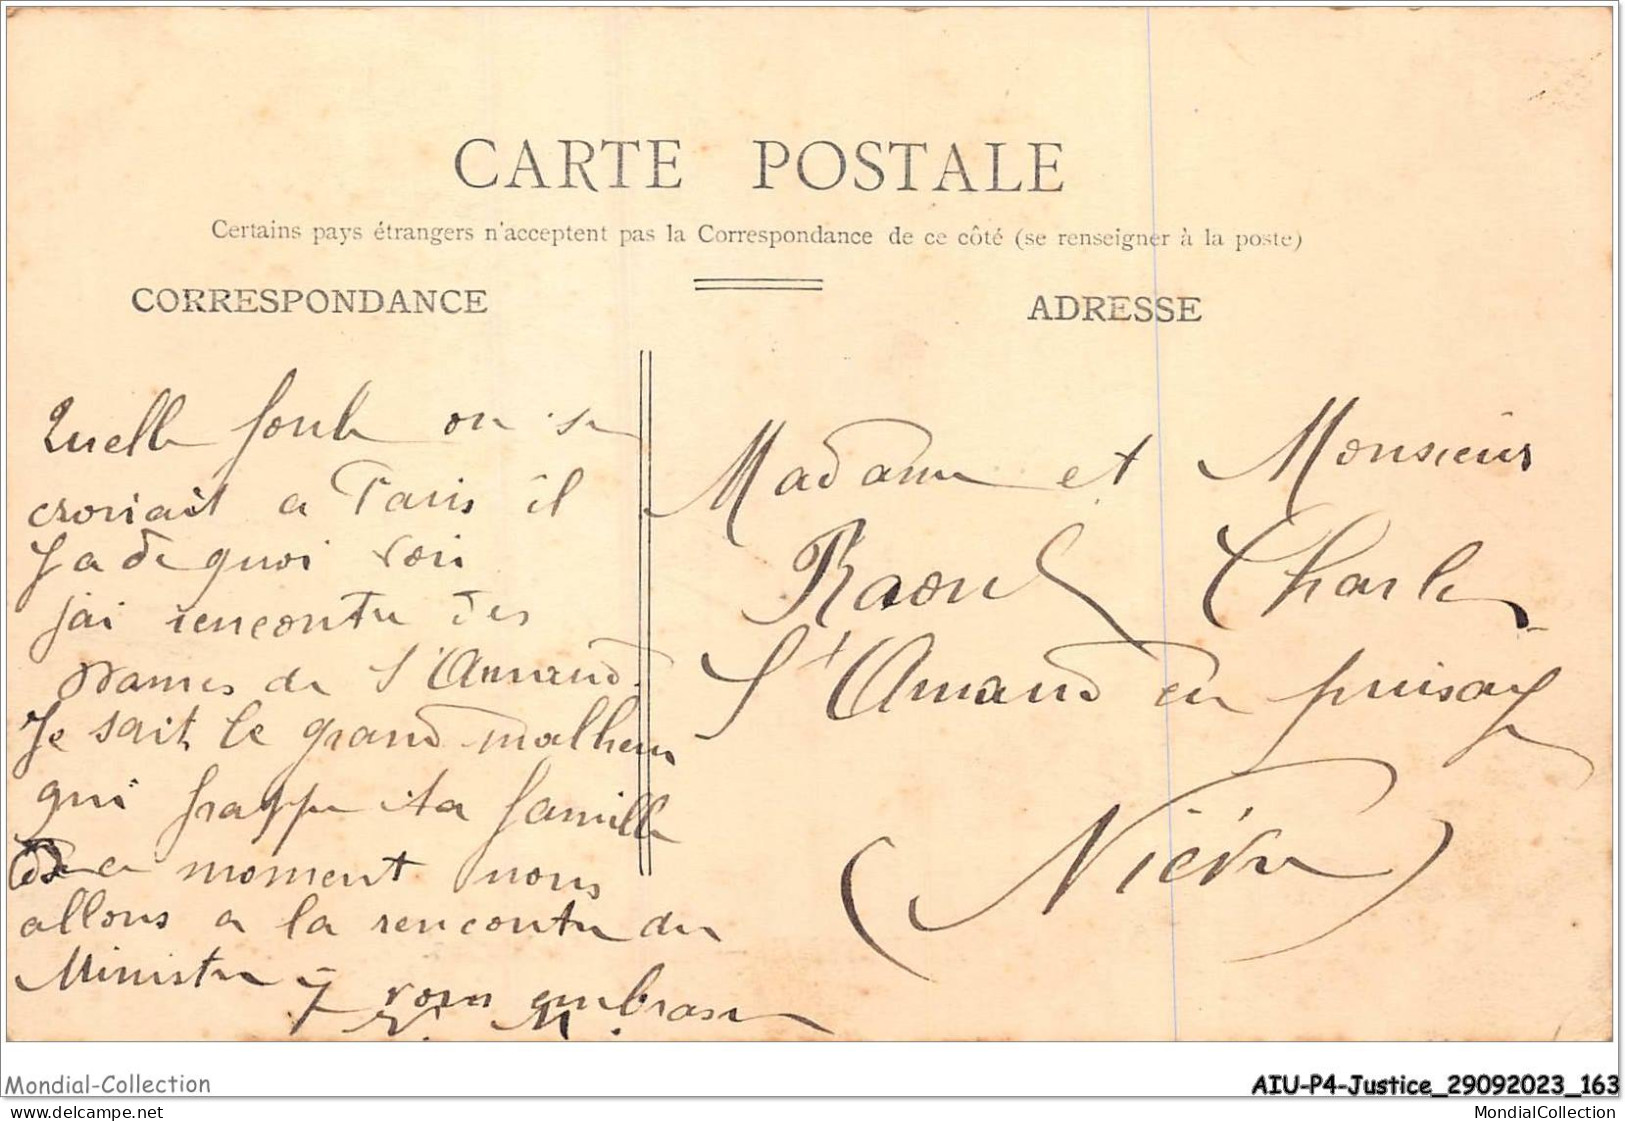 CARTE POSTALE
Certains pays étrangers n'acceptent pas la Correspondance de ce côté (se renseigner à la poste)
CORRESPONDANCE
ADRESSE
Quelle foule on se
croriait a Paris il
y a de quoi voir
j'ai rencontre des
Dames de St Amand.
Je sait le grand malheur
qui frappe ta famille
ce moment nous
allons a la rencontre du
Ministre
vous embrasse
Madame et Monsieur
Raoul Charles
St Amand en puisaye
(Nièvre)
Mondial-Collection
AIU-P4-Justice_29092023_163
Plus d'articles sur notre site
MondialCollection